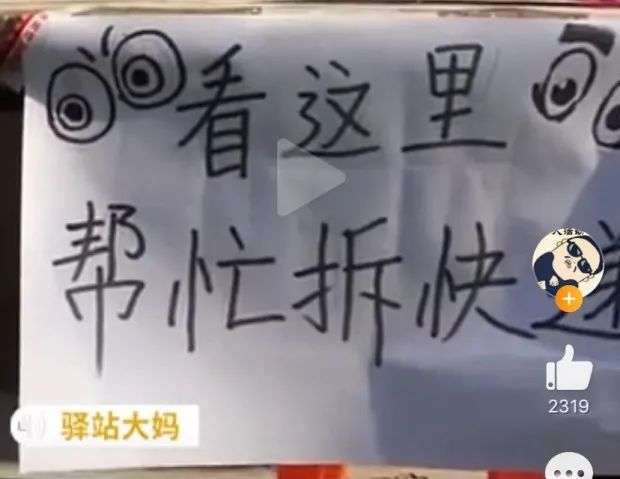 看这里
帮忙拆快递
驿站大妈
2319